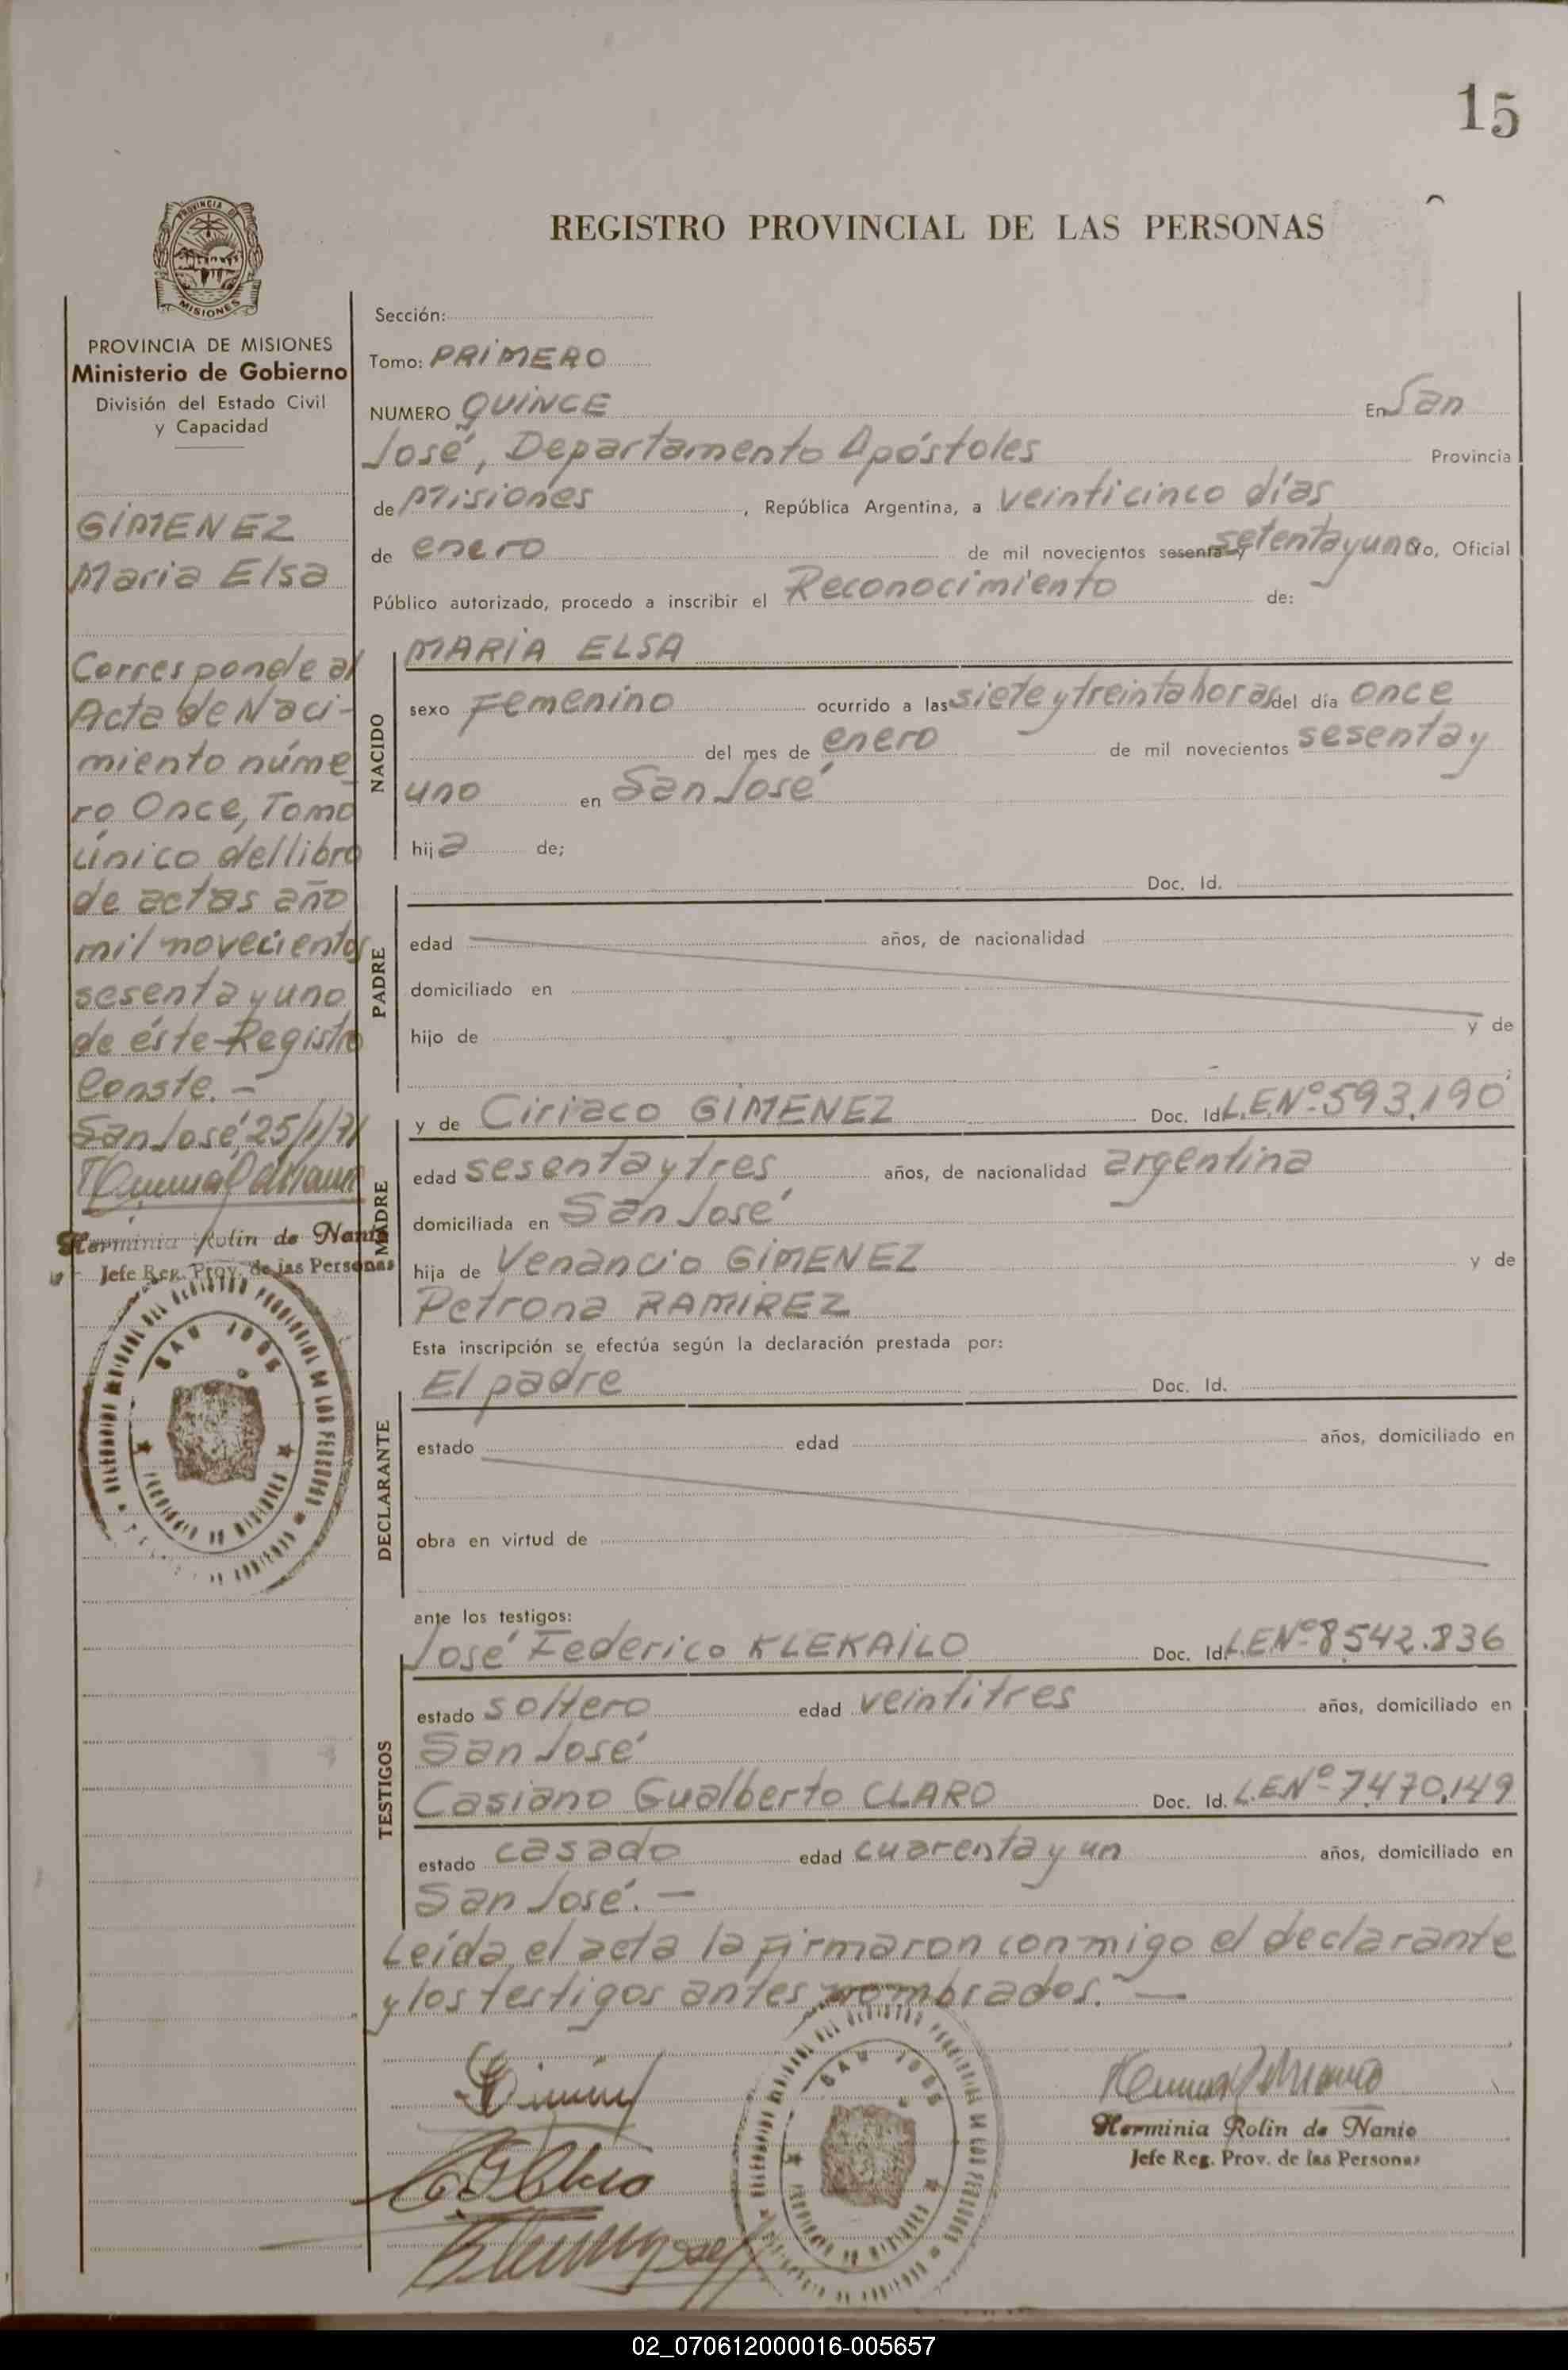 15
REGISTRO PROVINCIAL DE LAS PERSONAS
PROVINCIA DE MISIONES
Ministerio de Gobierno
División del Estado Civil
y Capacidad
GIMENEZ
Maria Elsa
Corresponde al
Acta de Naci-
miento núme
ro Once, Tomo
único del libro
de actas año
mil novecientos
sesenta y uno
de éste Registro
Conste.-
San José, 25/1/71
Herminia Rolin de Nanio
Jefe Reg. Prov. de las Personas
SAN JOSE
Sección:
Tomo: PRIMERO
NUMERO QUINCE En San
José, Departamento Apóstoles Provincia
de Misiones, República Argentina, a veinticinco días
de enero de mil novecientos sesenta y setenta y uno yo, Oficial
Público autorizado, procedo a inscribir el Reconocimiento de:
NACIDO
MARIA ELSA
sexo Femenino ocurrido a las siete y treinta horas del día once
del mes de enero de mil novecientos sesenta y
uno en San José
hija de;
PADRE
Doc. Id.
edad años, de nacionalidad
domiciliado en
hijo de y de
MADRE
y de Ciriaco GIMENEZ Doc. Id. L.E.Nº 593.190
edad sesenta y tres años, de nacionalidad argentina
domiciliada en San José
hija de Venancio GIMENEZ y de
Petrona RAMIREZ
Esta inscripción se efectúa según la declaración prestada por:
DECLARANTE
El padre Doc. Id.
estado edad años, domiciliado en
obra en virtud de
ante los testigos:
TESTIGOS
José Federico KLEKAILO Doc. Id. L.E.Nº 8.542.836
estado soltero edad veintitres años, domiciliado en
San José
Casiano Gualberto CLARO Doc. Id. L.E.Nº 7.470.149
estado casado edad cuarenta y un años, domiciliado en
San José.-
Leída el acta la firmaron conmigo el declarante
y los testigos antes nombrados.-
SAN JOSE
Herminia Rolin de Nanio
Jefe Reg. Prov. de las Personas
02_070612000016-005657